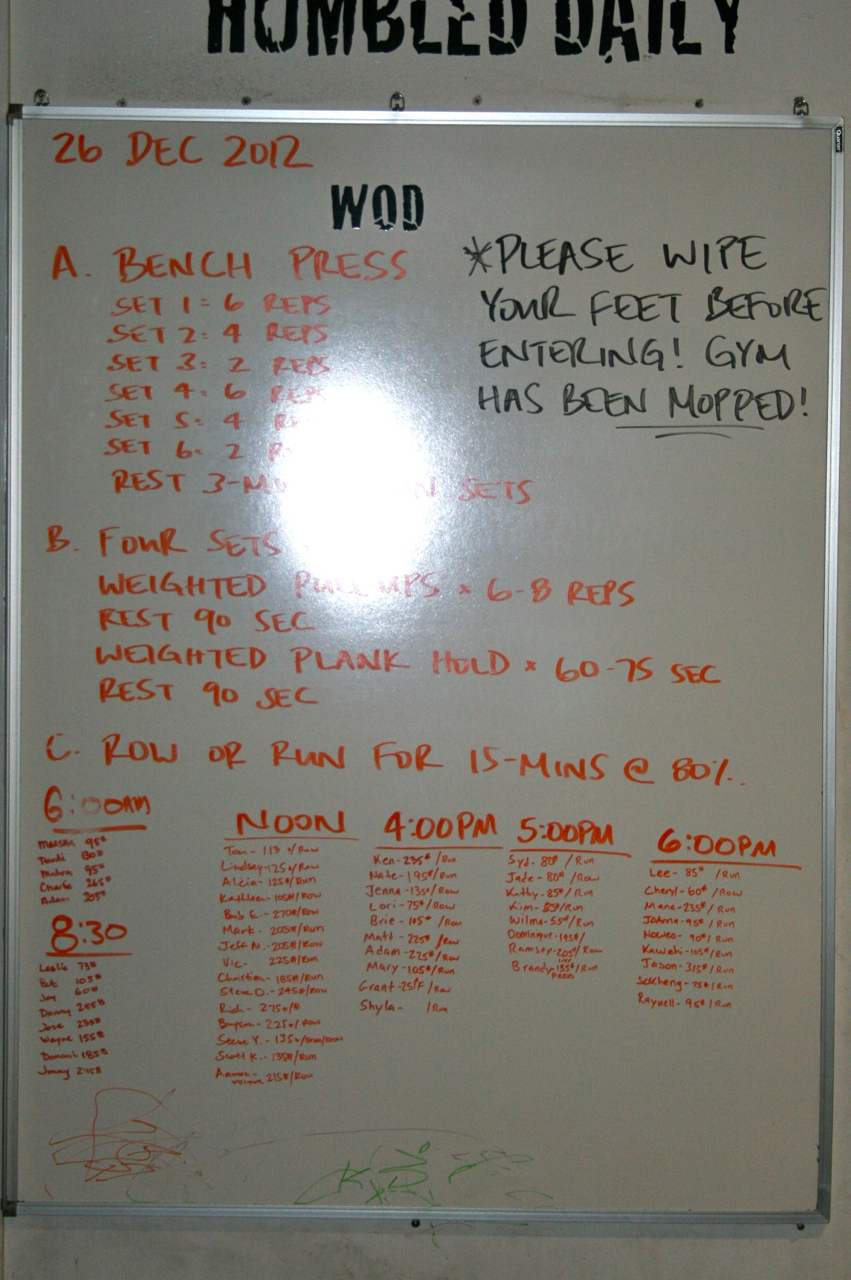 HUMBLED DAILY
26 DEC 2012
WOD
A. BENCH PRESS
SET 1: 6 REPS
SET 2: 4 REPS
SET 3: 2 REPS
SET 4: 6 REPS
SET 5: 4
SET 6: 2
REST 3-M SETS
*PLEASE WIPE
YOUR FEET BEFORE
ENTERING! GYM
HAS BEEN MOPPED!
B. FOUR SETS
WEIGHTED PULL UPS x 6-8 REPS
REST 90 SEC
WEIGHTED PLANK HOLD x 60-75 SEC
REST 90 SEC
C. ROW OR RUN FOR 15-MINS @ 80%.
6:00AM
95#
95#
Charlie 265#
205#
8:30
Leslie 73#
Bob 103#
Joy 60#
Danny 255#
Jose 235#
Wayne 155#
185#
Jimmy 245#
NOON
Tori- 113 #/Row
Lindsey-125#/Row
Alicia- 125#/Run
Kathleen- 105#/Row
Bob G.- 270#/Row
Mark- 205#/Run
Jeff M.-205#/Row
Vic- 225#/Run
Christian- 185#/Run
Steve O.-245#/Row
Rich- 275#/R
Bryson- 225#/Row
Steve Y.- 135#/Row
Scott K.- 135#/Run
Aaron- 215#/Row
4:00PM
Ken-235#/Run
Nate-195#/Run
Jenna-135#/Row
Lori-75#/Row
Brie-105#/Row
Matt-225#/Row
Adam-225#/Row
Mary-105#/Run
Grant-251#/Row
Shyla- /Run
5:00PM
Syd-80#/Run
Jade-80#/Row
Kathy-85#/Run
Kim-85#/Run
Wilma-55#/Run
Dominque-195#/
Ramsey-205#/Row
Brandy-135#/Run
6:00PM
Lee-85#/Run
Cheryl-60#/Row
Mana-235#/Run
JoAnna-95#/Run
90#/Run
Kawehi-105#/Run
Jason-315#/Run
Sokcheng-75#/Run
Raynell-95#/Run